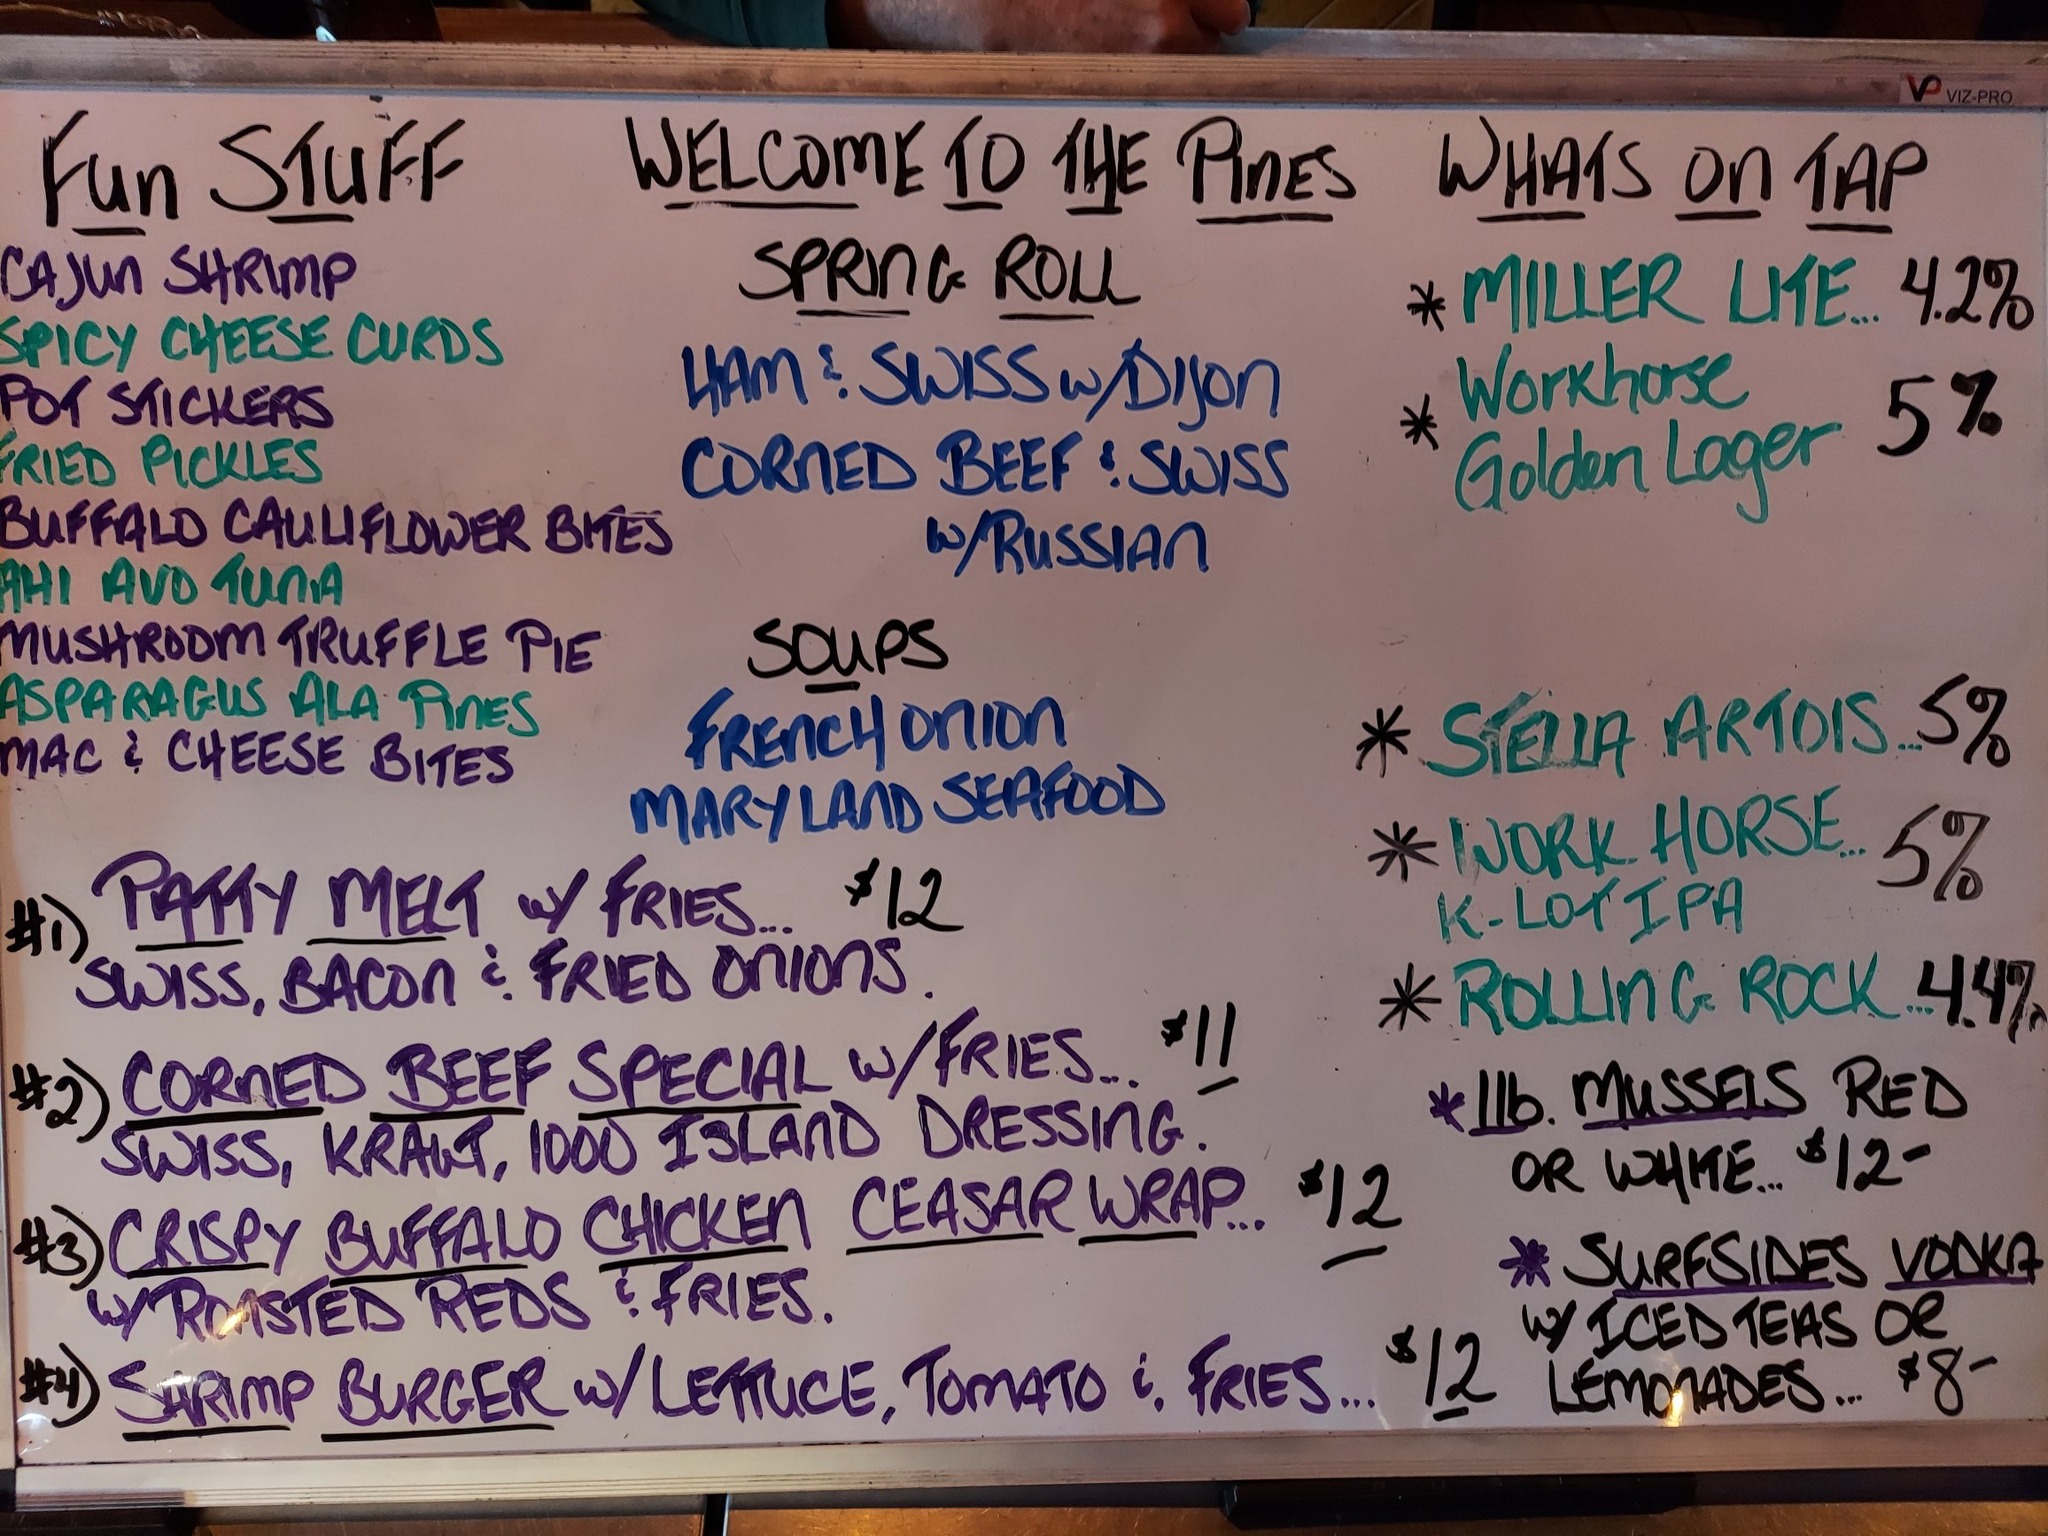 VP VIZ-PRO
Fun STUFF
CAJUN SHRIMP
SPICY CHEESE CURDS
POT STICKERS
FRIED PICKLES
BUFFALO CAULIFLOWER BITES
AHI AVO TUNA
MUSHROOM TRUFFLE PIE
ASPARAGUS ALA PINES
MAC & CHEESE BITES
WELCOME TO THE PINES
SPRING ROLL
HAM & SWISS w/DIJON
CORNED BEEF & SWISS
w/RUSSIAN
SOUPS
FRENCH ONION
MARYLAND SEAFOOD
WHATS ON TAP
* MILLER LITE... 4.2%
* Workhorse
Golden Lager 5%
* STELLA ARTOIS... 5%
* WORK HORSE... 5%
K-LOT IPA
* ROLLING ROCK... 4.4%
* 1lb. MUSSELS RED
OR WHITE... $12-
* SURFSIDES VODKA
w/ ICED TEAS OR
LEMONADES... $8-
#1) PATTY MELT w/ FRIES... $12
SWISS, BACON & FRIED ONIONS.
#2) CORNED BEEF SPECIAL w/FRIES... $11
SWISS, KRAUT, 1000 ISLAND DRESSING.
#3) CRISPY BUFFALO CHICKEN CEASAR WRAP... $12
w/ ROASTED REDS & FRIES.
#4) SHRIMP BURGER w/ LETTUCE, TOMATO & FRIES... $12